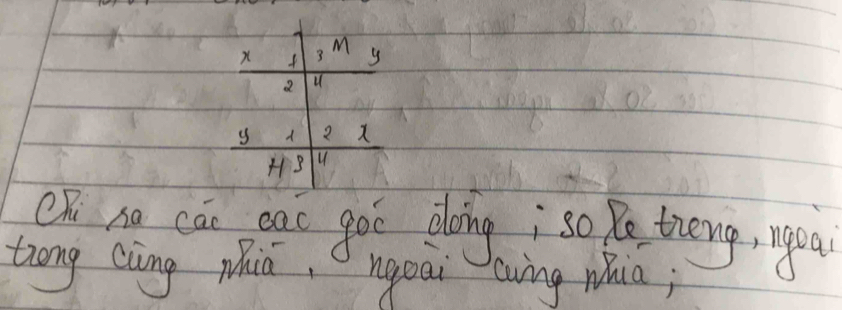 x 1 3 M y
2 4
y 1 2 x
H 3 4
Chỉ ra các các góc đồng ; so le trong, ngoài
trong cùng phía, ngoài cùng phía ;